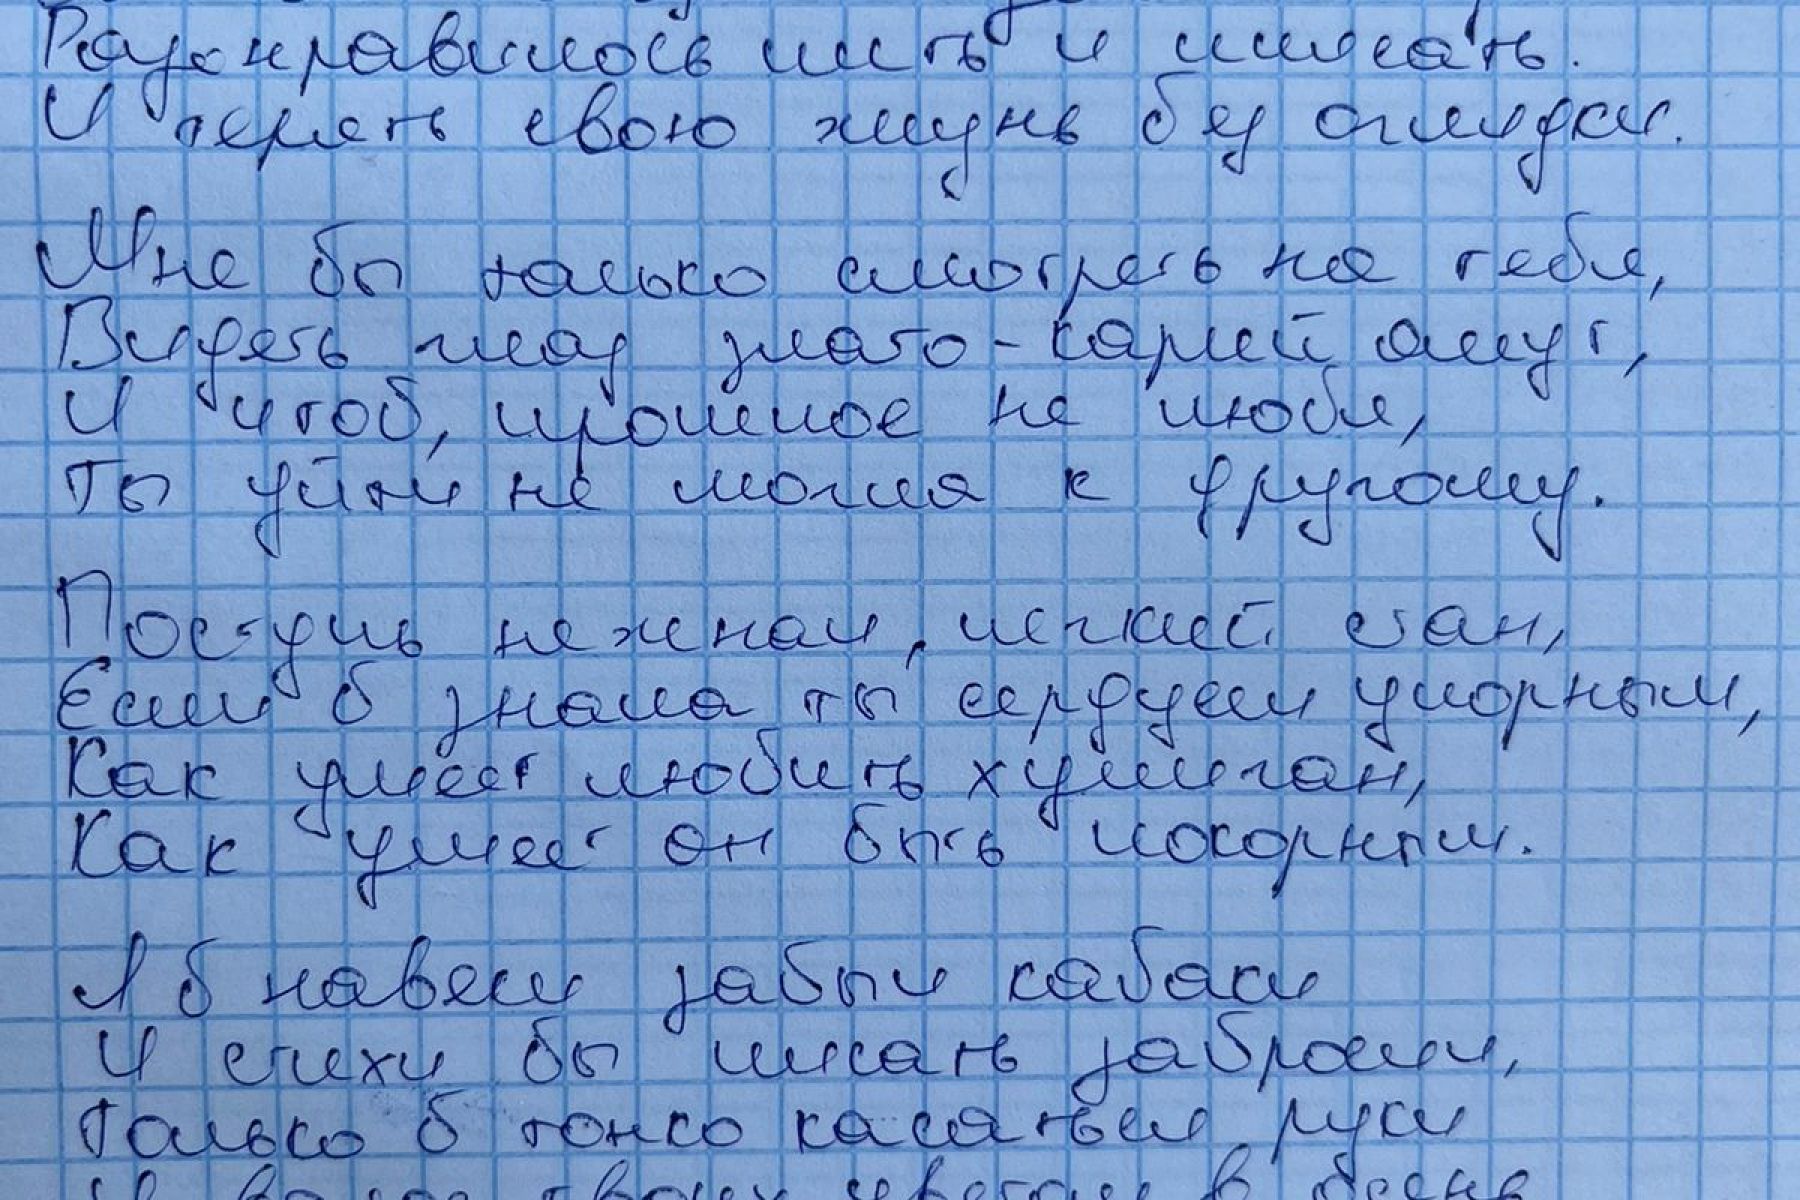 Разонравилось пить и писать.
И терять свою жизнь без оглядки.
Мне бы только смотреть на тебя,
Видеть глаз злато-карий омут,
И чтоб, прошлое не любя,
Ты уйти не могла к другому.
Поступь нежная, легкий стан,
Если б знала ты сердцем упорным,
Как умеет любить хулиган,
Как умеет он быть покорным.
Я б навеки забыл кабаки
И стихи бы писать забросил,
Только б тонко касаться руки
И волос твоих цветом в осень